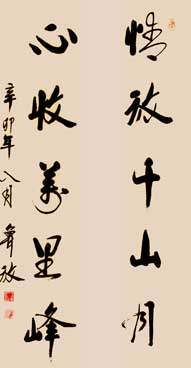 情放千山月
心收万里峰
辛卯年八月